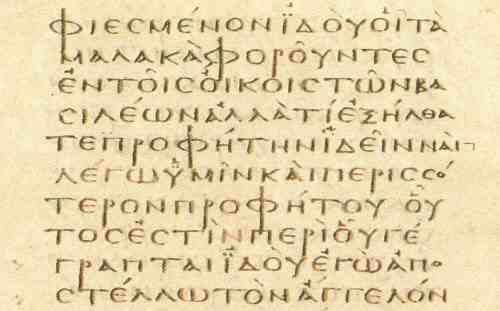 ΦΙΕΣΜΕΝΟΝ ΪΔΟΥ ΟΙ ΤΑ
ΜΑΛΑΚΑ ΦΟΡΟΥΝΤΕΣ
ΕΝ ΤΟΙΣ ΟΙΚΟΙΣ ΤΩΝ ΒΑ
ΣΙΛΕΩΝ ΑΛΛΑ ΤΙ ΕΞΗΛΘΑ
ΤΕ ΠΡΟΦΗΤΗΝ ΪΔΕΙΝ ΝΑΙ
ΛΕΓΩ ΫΜΙΝ ΚΑΙ ΠΕΡΙΣΣΟ
ΤΕΡΟΝ ΠΡΟΦΗΤΟΥ ΟΥ
ΤΟΣ ΕΣΤΙΝ ΠΕΡΙ ΟΥ ΓΕ
ΓΡΑΠΤΑΙ ΪΔΟΥ ΕΓΩ ΑΠΟ
ΣΤΕΛΛΩ ΤΟΝ ΑΓΓΕΛΟΝ